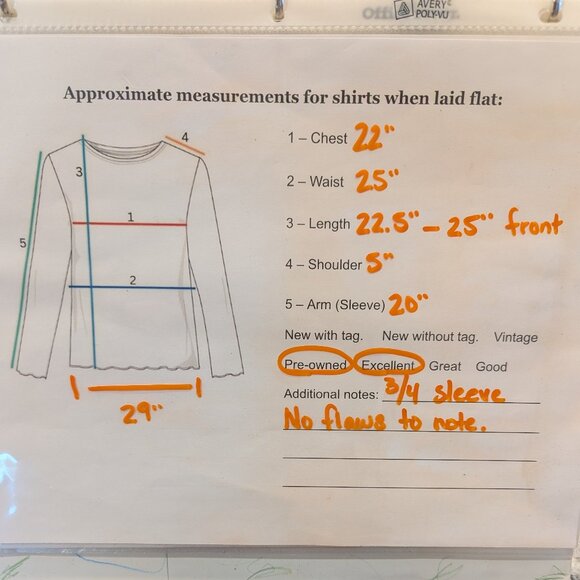 AVERY
POLY-VU
Approximate measurements for shirts when laid flat:
1 – Chest 22"
2 – Waist 25"
3 – Length 22.5" – 25" front
4 – Shoulder 5"
5 – Arm (Sleeve) 20"
New with tag. New without tag. Vintage
Pre-owned Excellent Great Good
Additional notes: 3/4 sleeve
No flaws to note.
4
3
1
5
2
29"